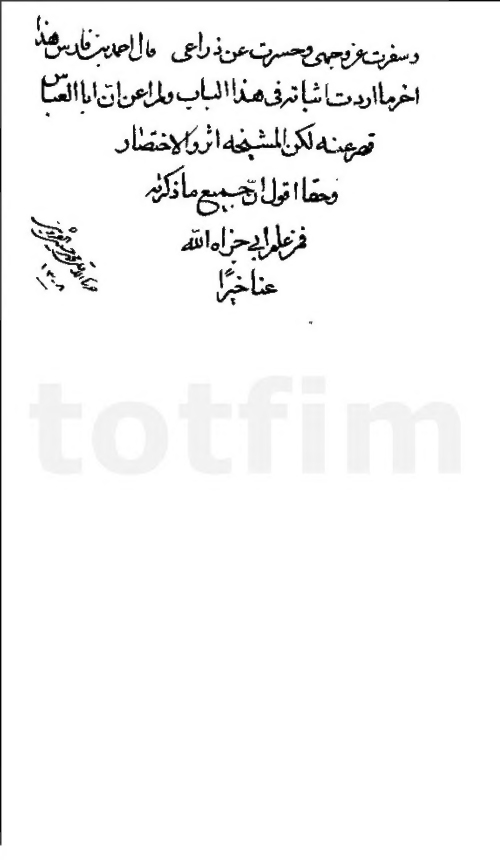 وسفرت عن وجهى وحسرت عن ذراعى قال احمد بن فارس هذا
اخر ما اردت اثباته فى هذا الباب ولم اعن ان ابا العباس
قصر عنه لكن المشيخه اثروا الاختصار
وحقا اقول ان جميع ما ذكرته
فمن علم ابي جزاه الله
عنا خيرًا
totfim